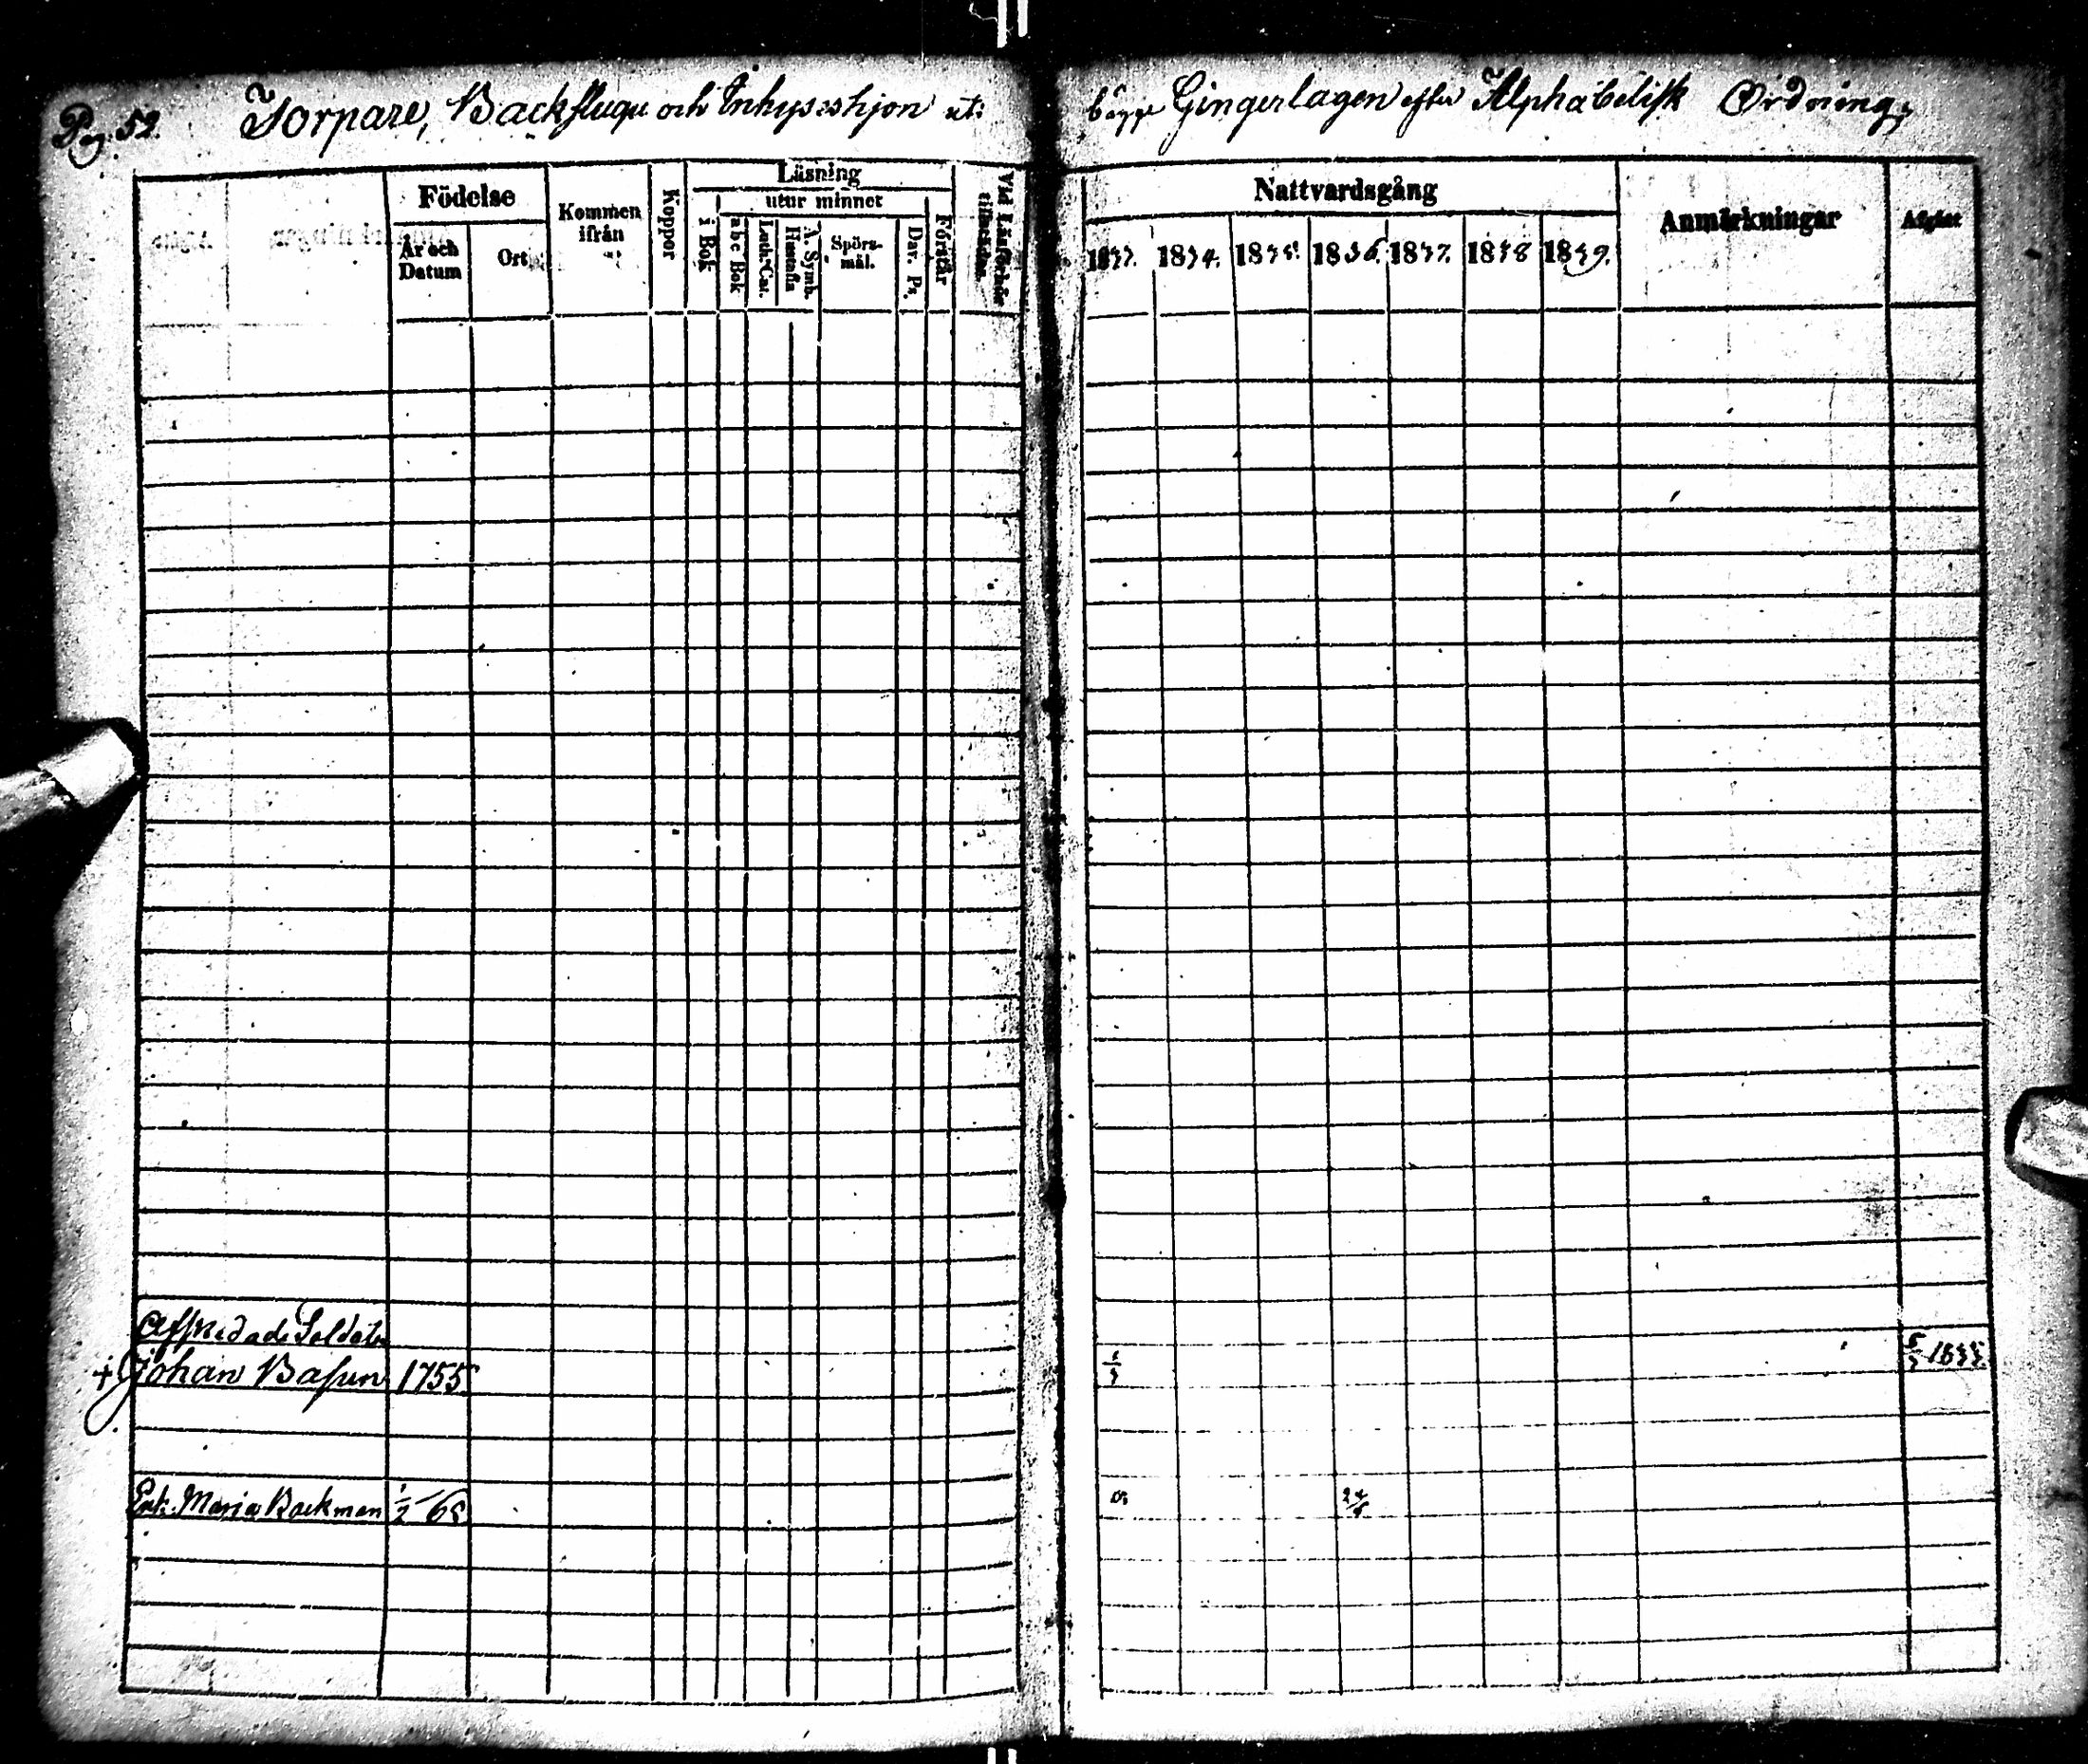 Pag. 52. Torpare, Backstugu och Inhyseshjon uti bägge Gingerlagen efter Alphabetisk Ordning.
Födelse
År och Datum
Ort
Kommen ifrån
Koppor
Läsning
i Bok
utur minnet
a b c Bok
Luth. Cat.
Hustafla
A. Symb.
Spörsmål.
Dav. Ps.
Förstår
Vid Läsförhör tillstädes.
Nattvardsgång
1833. 1834. 1835. 1836. 1837. 1838 1839.
Anmärkningar
Afgått
Afskedade Soldaten
+ Johan Basun 1755
Enk. Maria Backman 1/2 65 24/4